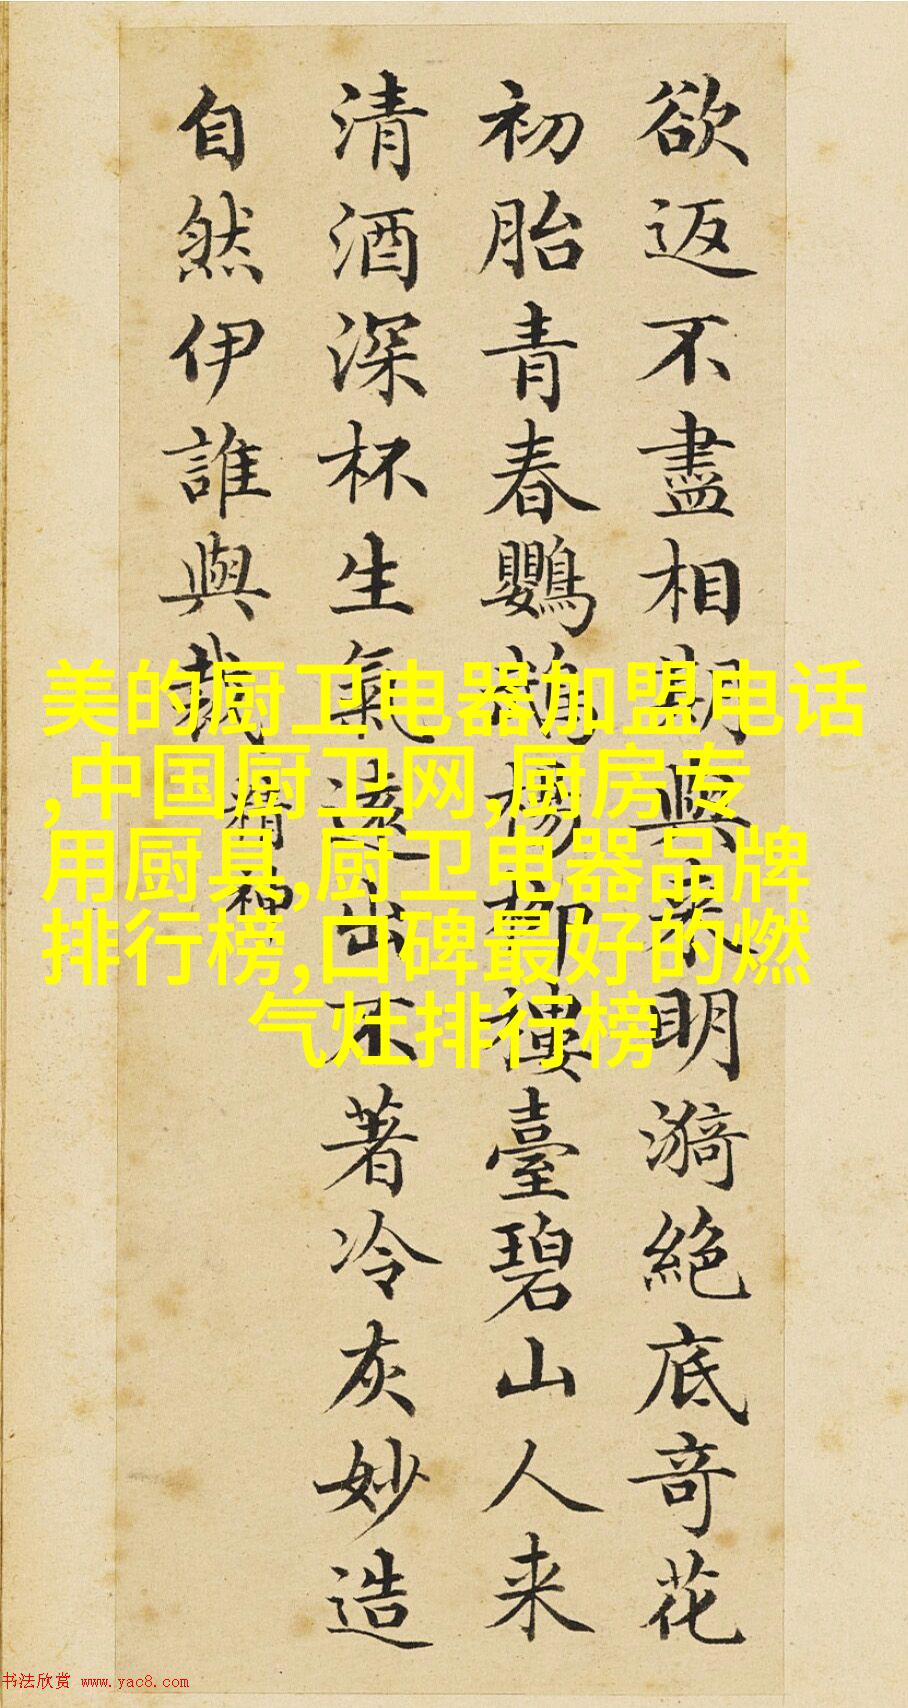 欲返不盡相期與来明漪絕底竒花
初胎青春鸚鵡楊柳樓臺碧山人来
清酒深杯生氣遠出不著冷灰妙造
自然伊誰與裁
精神
美的厨卫电器加盟电话
,中国厨卫网,厨房专
用厨具,厨卫电器品牌
排行榜,口碑最好的燃
气灶排行榜
书法欣赏 www.yac8.com